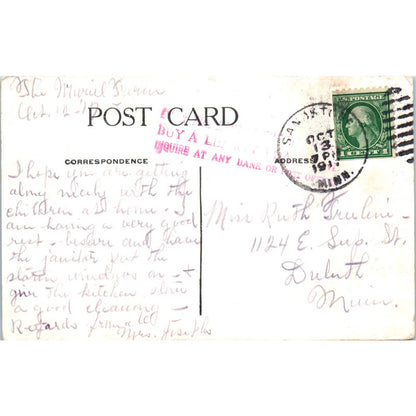 The Muriel
Oct. 12 '17
POST CARD
BUY A LIBERTY
INQUIRE AT ANY BANK OR POST OFFICE
CORRESPONDENCE
ADDRESS
I hope you are getting
along nicely with the
children at home. I
am having a very good
rest - be sure and have
the janitor put the
storm windows on - &
give the kitchen stove
a good cleaning -
Regards from all
Mrs. Josephs
OCT
13
PM
191
MINN.
U.S. POSTAGE
1 CENT 1
Miss Ruth
1124 E. Sup. St.
Duluth
Minn.